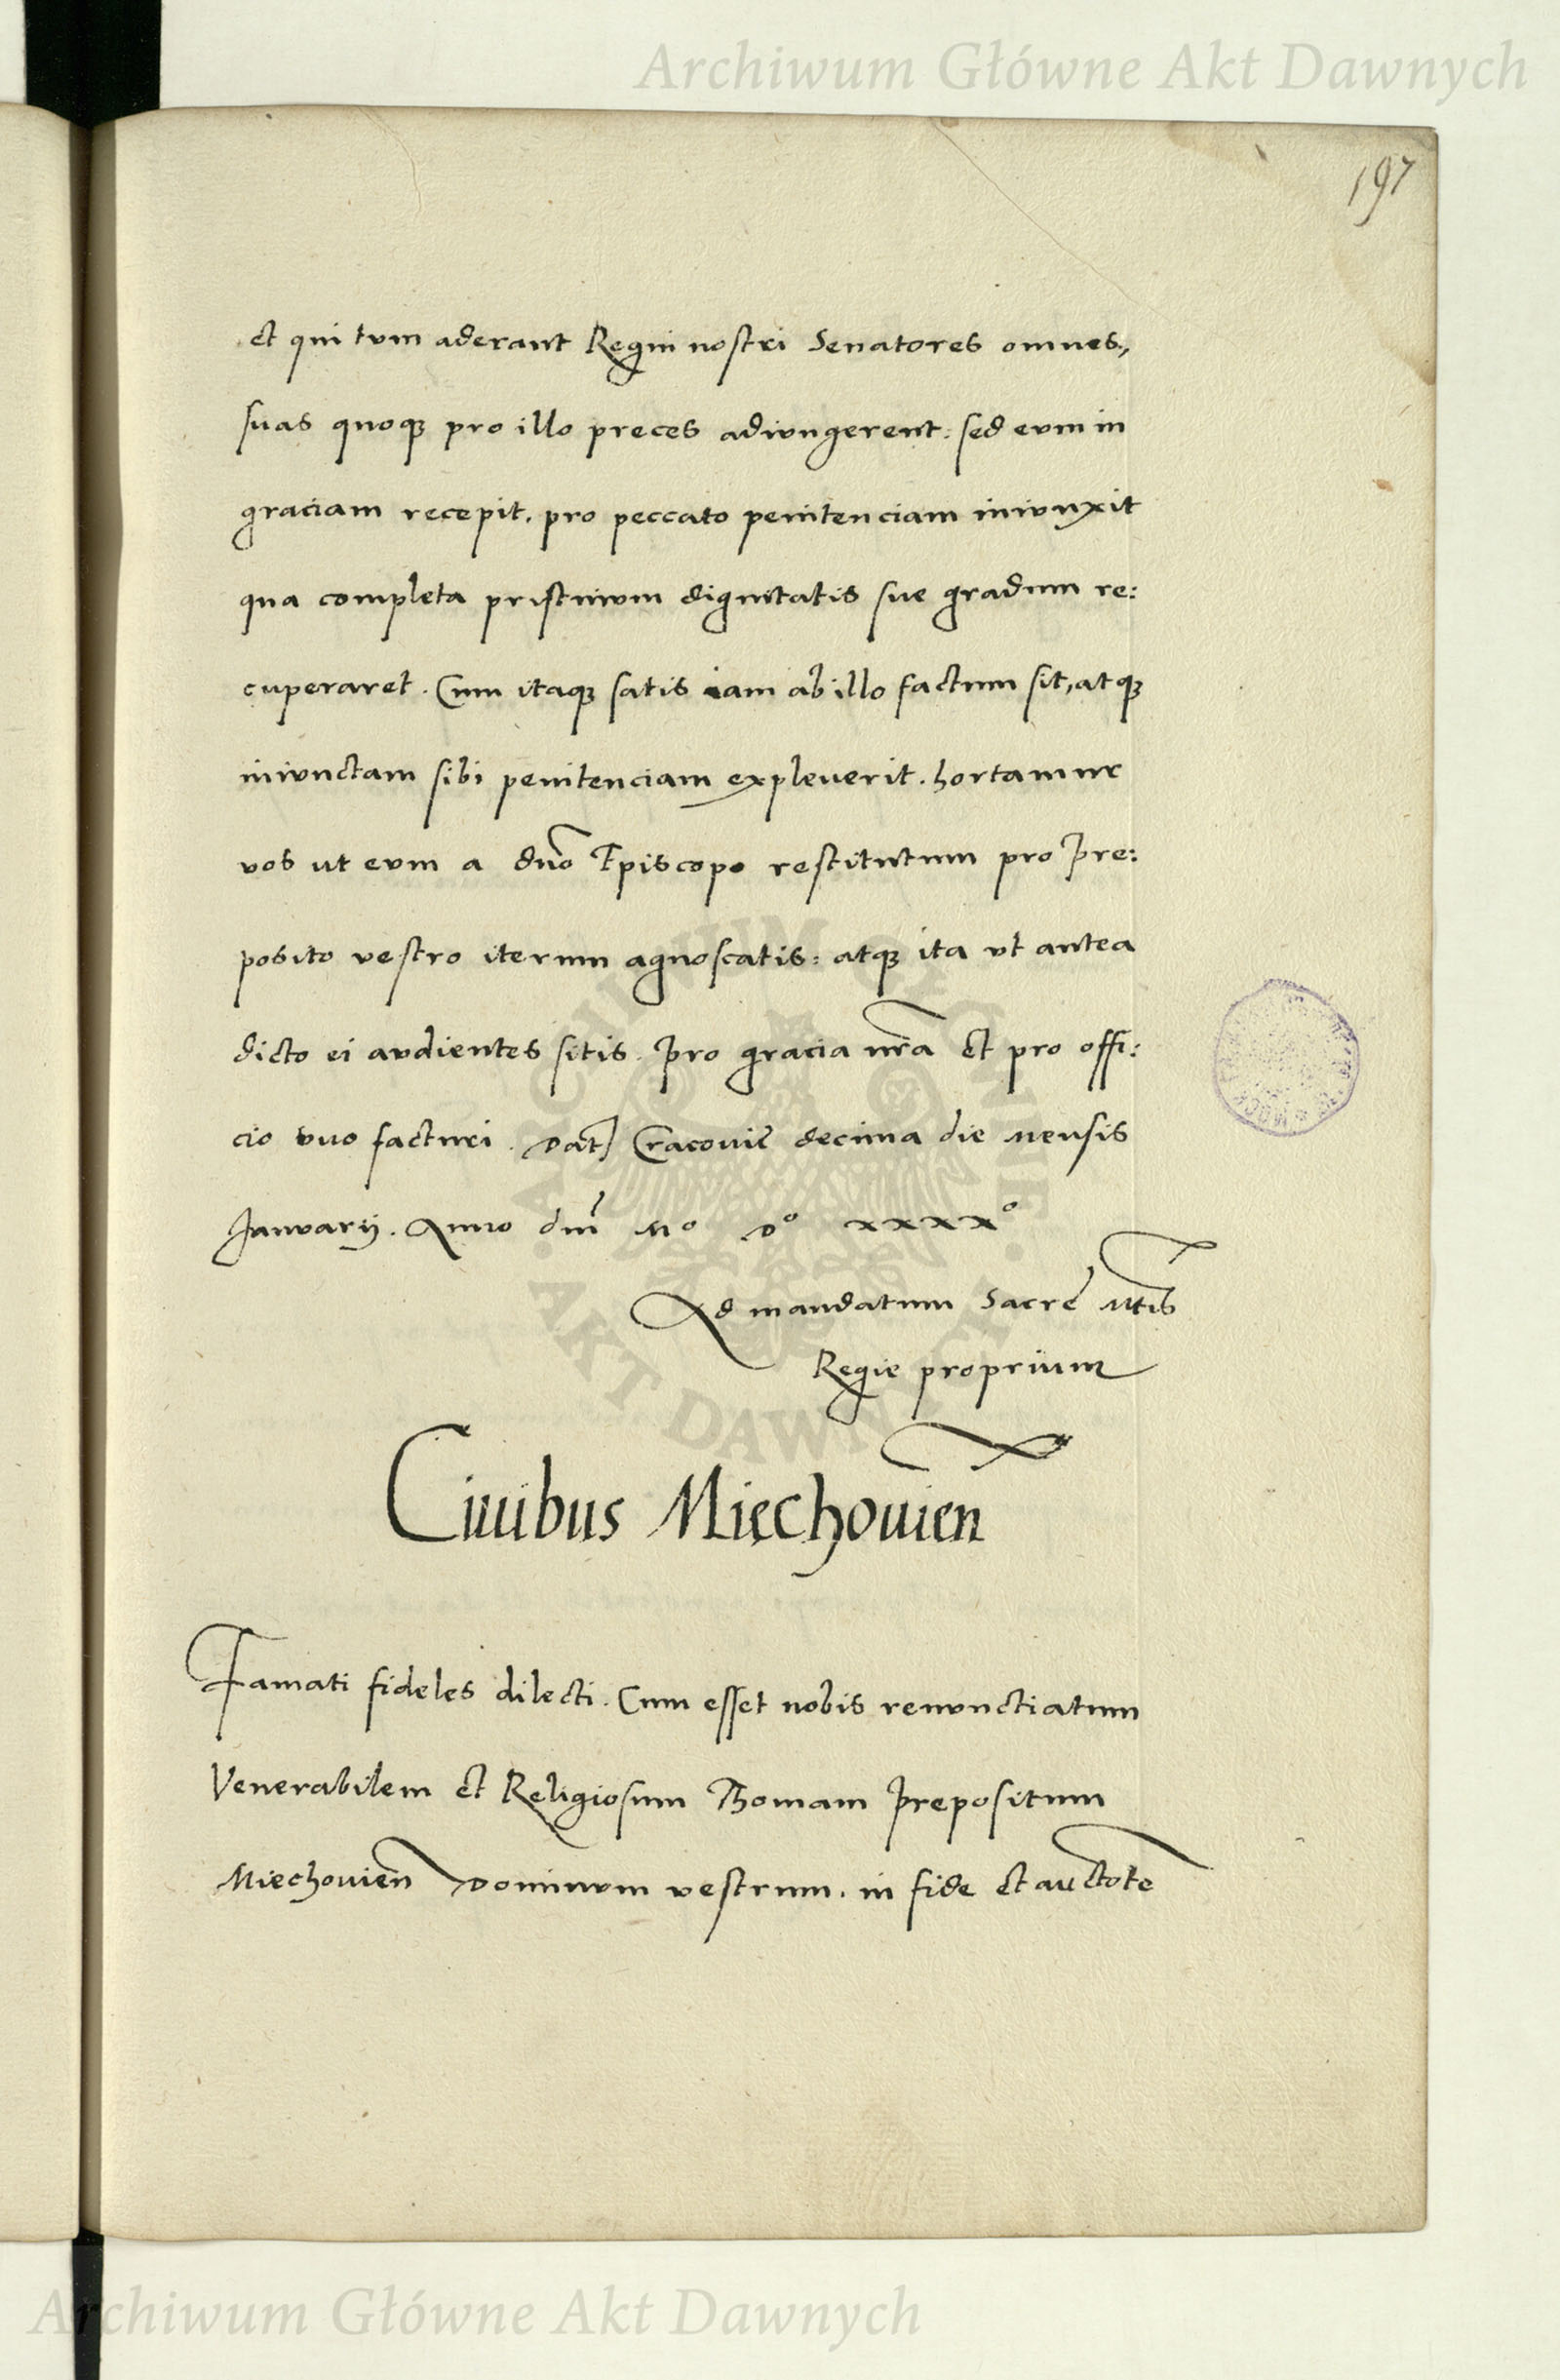 Archiwum Główne Akt Dawnych
197
et qui tum aderant Regni nostri Senatores omnes,
suas quoqꝫ pro illo preces adiungerent: sed eum in
graciam recepit, pro peccato penitenciam iniunxit
qua completa pristinum dignitatis sue gradum re:
cuperaret. Cum itaqꝫ satis iam ab illo factum sit, atqꝫ
iniunctam sibi penitenciam expleuerit. hortamur
vos ut eum a dno Episcopo restitutum pro Pre:
posito vestro iterum agnoscatis: atqꝫ ita vt antea
dicto ei audientes sitis. Pro gracia nra et pro offi:
cio vuo facturi. Dat Cracovie decima die mensis
Januarij. Anno dni Mº Dº xxxxº
Ad mandatum Sacre Mtis
Regie proprium
Ciuibus Miechouien
Famati fideles dilecti. Cum esset nobis renunctiatum
Venerabilem et Religiosum Thomam Prepositum
Miechouien Dominum vestrum. in fide et auctote
ARCHIWUM GŁÓWNE AKT DAWNYCH
Archiwum Główne Akt Dawnych